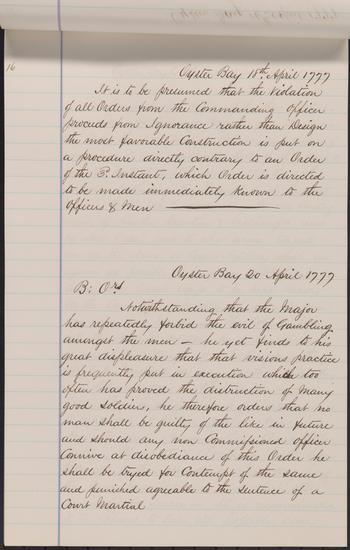 16
Oyster Bay 18th April 1777
It is to be presumed that the Violation
of all Orders from the Commanding Officer
proceeds from Ignorance rather than Design
the most favorable Construction is put on
a procedure directly contrary to an Order
of the 3. Instant, which Order is directed
to be made immediately known to the
Officers & Men
Oyster Bay 20 April 1777
B: Ors
Notwithstanding that the Major
has repeatedly forbid the evil of Gambling
amongst the men — he yet finds to his
great displeasure that that visious practice
is frequently put in execution which too
often has proved the distruction of Many
good Soldiers, he therefore orders that no
man shall be guilty of the like in future
and should any non Commissioned officer
Connive at disobediance of this Order he
shall be tryed for Contempt of the same
and punished agreeable to the sentence of a
Court Martial